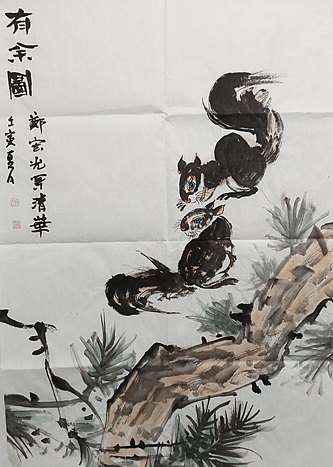 有余圖
鄭宏光清華
壬寅夏月